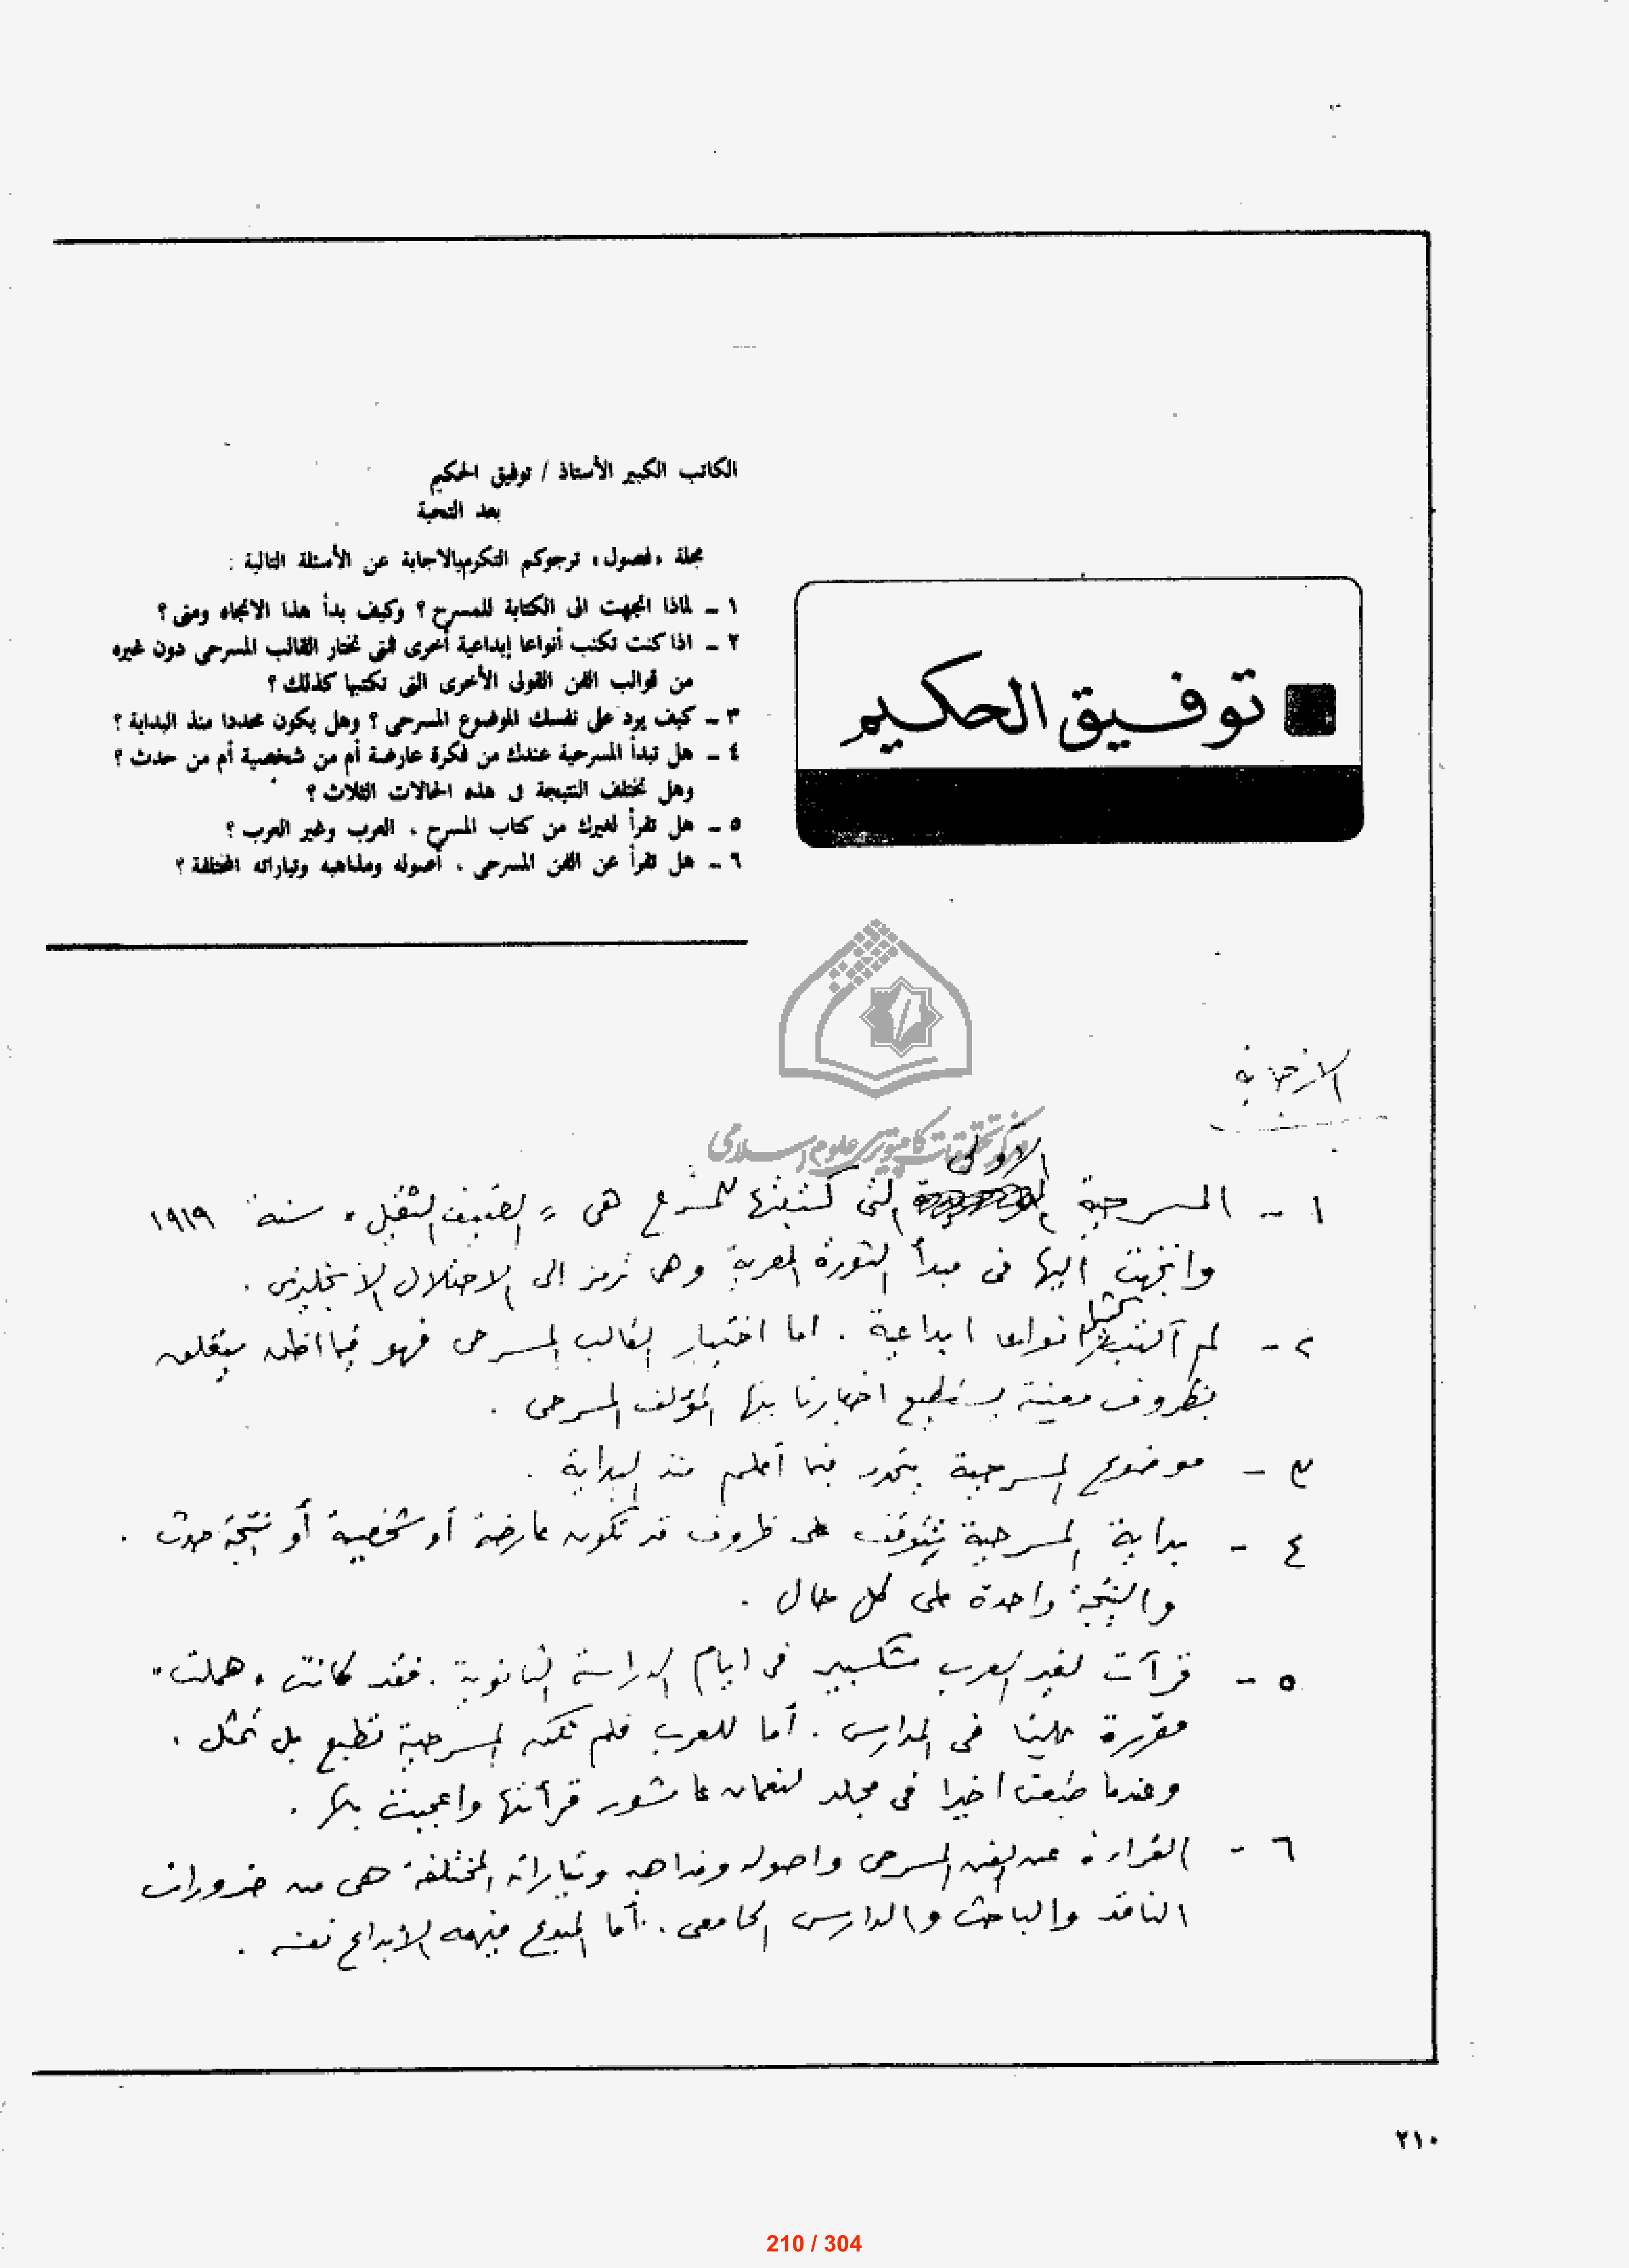 الكاتب الكبير الأستاذ / توفيق الحكيم
بعد التحية
مجلة «فصول» ترجوكم التكرم بالاجابة عن الأسئلة التالية :
١ ـ لماذا اتجهت الى الكتابة للمسرح ؟ وكيف بدأ هذا الاتجاه ومتى ؟
٢ ـ اذا كنت تكتب أنواعا إبداعية أخرى فمتى تختار القالب المسرحى دون غيره
من قوالب الفن القولى الأخرى التى تكتبها كذلك ؟
٣ ـ كيف يرد على نفسك الموضوع المسرحى ؟ وهل يكون محددا منذ البداية ؟
٤ ـ هل تبدأ المسرحية عندك من فكرة عارضة أم من شخصية أم من حدث ؟
وهل تختلف النتيجة فى هذه الحالات الثلاث ؟
٥ ـ هل تقرأ لغيرك من كتاب المسرح ، العرب وغير العرب ؟
٦ ـ هل تقرأ عن الفن المسرحى ، أصوله ومذاهبه وتياراته المختلفة ؟
توفيق الحكيم
مركز تحقيقات كامپيوترى علوم اسلامى
الاجابة
١ - المسرحية الأولى التى كتبتها للمسرح هى « الضيف الثقيل » سنة ١٩١٩
واتجهت اليها فى مبدأ الثورة المصرية وهى ترمز الى الاحتلال الانجليزى .
٢ - لم أكتب انواعا ابداعية . اما اختيار القالب المسرحى فهو فيما اظن يتعلق
بظروف معينة يستطيع اخبارنا بها المؤلف المسرحى .
٣ - موضوع المسرحية يتحدد فيما أعلم منذ البداية .
٤ - بداية المسرحية تتوقف على ظروف قد تكون عارضة أو شخصية أو نتيجة حدث .
والنتيجة واحدة على كل حال .
٥ - قرأت لغير العرب شكسبير فى ايام الدراسة الثانوية . فقد كانت « هملت »
مقررة علينا فى المدارس . أما للعرب فلم تكن المسرحية تطبع بل تمثل .
وعندما طبعت اخيرا فى مجلد لنعمان عاشور قرأتها واعجبت بها .
٦ - القراءة عن الفن المسرحى واصوله ومذاهبه وتياراته المختلفة هى من ضرورات
الناقد والباحث والدارس الجامعى . أما المبدع فيهمه الابداع نفسه .
٢١٠
210 / 304